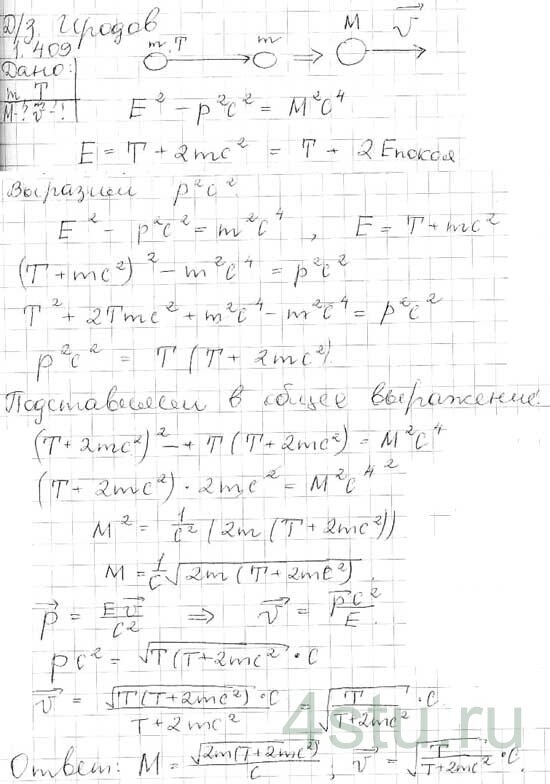 Д/з. Иродов
1.409
m, T   m ⇒ M v⃗
Дано:
m T
M-? v⃗-?
E² - p²c² = M²c⁴
E = T + 2mc² = T + 2Eпокоя
Выразили p²c².
E² - p²c² = m²c⁴ , E = T + mc²
(T + mc²)² - m²c⁴ = p²c²
T² + 2Tmc² + m²c⁴ - m²c⁴ = p²c²
p²c² = T(T + 2mc²)
Подставляем в общее выражение:
(T + 2mc²)² - T(T + 2mc²) = M²c⁴
(T + 2mc²) · 2mc² = M²c⁴ ²
M² = 1/c² (2m(T + 2mc²))
M = 1/c √(2m(T + 2mc²))
p⃗ = Ev⃗/c² ⇒ v⃗ = p⃗c²/E.
pc² = √(T(T + 2mc²)) · c
v⃗ = √(T(T + 2mc²)) · c / (T + 2mc²) = √(T/(T + 2mc²)) · c
Ответ: M = √(2m(T + 2mc²))/c ; v⃗ = √(T/(T + 2mc²)) · c.
4stu.ru